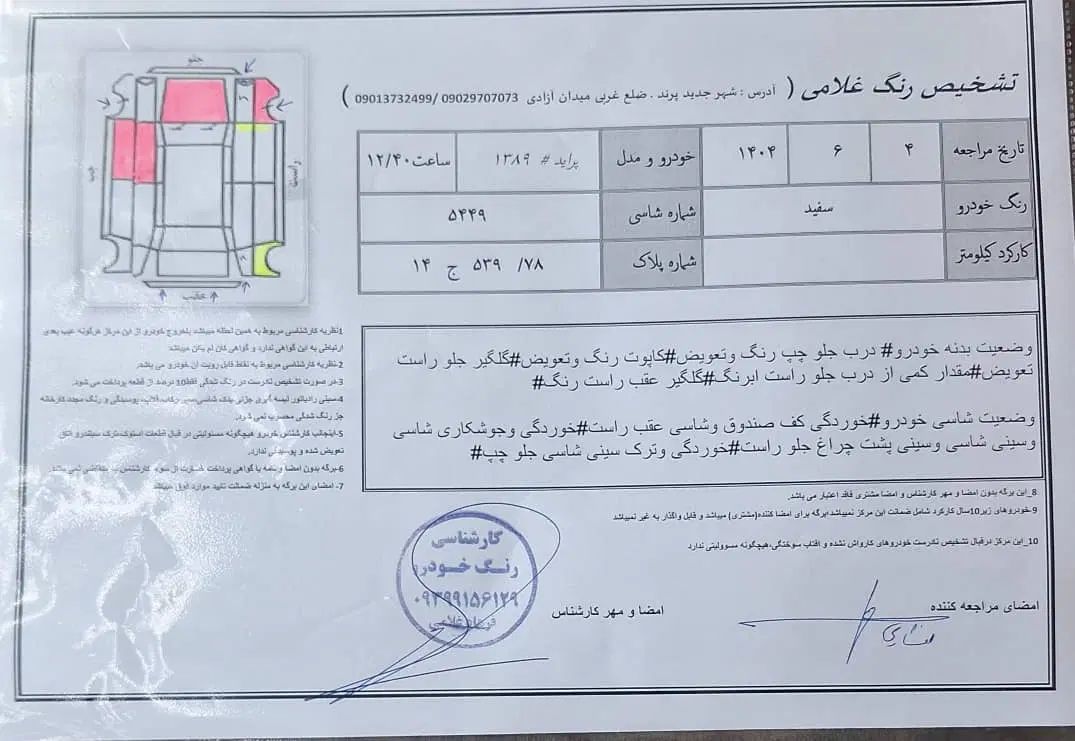 تشخیص رنگ غلامی ( آدرس : شهر جدید پرند . ضلع غربی میدان آزادی 09029707073 /09013732499 )
تاریخ مراجعه ۴ ۶ ۱۴۰۴ خودرو و مدل پراید # ۱۳۸۹ ساعت ۱۲/۴۰
رنگ خودرو سفید شماره شاسی ۵۴۴۹
کارکرد کیلومتر شماره پلاک ۷۸/ ۵۳۹ ج ۱۴
جلو
چپ
راست
عقب
وضعیت بدنه خودرو# درب جلو چپ رنگ وتعویض#کاپوت رنگ وتعویض#گلگیر جلو راست
تعویض#مقدار کمی از درب جلو راست ابرنگ#گلگیر عقب راست رنگ#
وضعیت شاسی خودرو#خوردگی کف صندوق وشاسی عقب راست#خوردگی وجوشکاری شاسی
وسینی شاسی وسینی پشت چراغ جلو راست#خوردگی وترک سینی شاسی جلو چپ#
1نظریه کارشناسی مربوط به همین لحظه میباشد باخروج خودرو از این مرکز هرگونه عیب بعدی
ارتباطی به این گواهی ندارد و گواهی کان لم یکن میباشد
2-نظریه کارشناسی مربوط به نقاط قابل رویت ان خودرو می باشد.
3-در صورت تشخیص نادرست در رنگ شدگی فقط10 درصد از قطعه پرداخت می شود.
4-سینی رادیاتور لیسه گیری جزئی پلاک شاسی،سپر رکاب،قالپاق، پوسیدگی و رنگ مجدد کارخانه
جز رنگ شدگی محسوب نمی شود.
5-اینجانب کارشناس خودرو هیچگونه مسئولیتی در قبال قطعات استوک،ترک سیلندرو اتاق
تعویض شده و پوسیدگی ندارد.
6-برگه بدون امضا و نامه یا گواهی پرداخت خسارت از سوی کارشناس به متقاضی نمی باشد
7- امضای این برگه به منزله ضمانت تایید موارد فوق میباشد
8_این برگه بدون امضا و مهر کارشناس و امضا مشتری فاقد اعتبار می باشد.
9-خودروهای زیر10سال کارکرد شامل ضمانت این مرکز نمیباشد/برگه برای امضا کننده(مشتری) میباشد و قابل واگذار به غیر نمیباشد
10_این مرکز درقبال تشخیص نادرست خودروهای کارواش نشده و افتاب سوختگی،هیچگونه مسوولیتی ندارد
امضای مراجعه کننده
امضا و مهر کارشناس
کارشناسی
رنگ خودرو
۰۹۳۹۹۱۵۶۱۲۹
غلامی